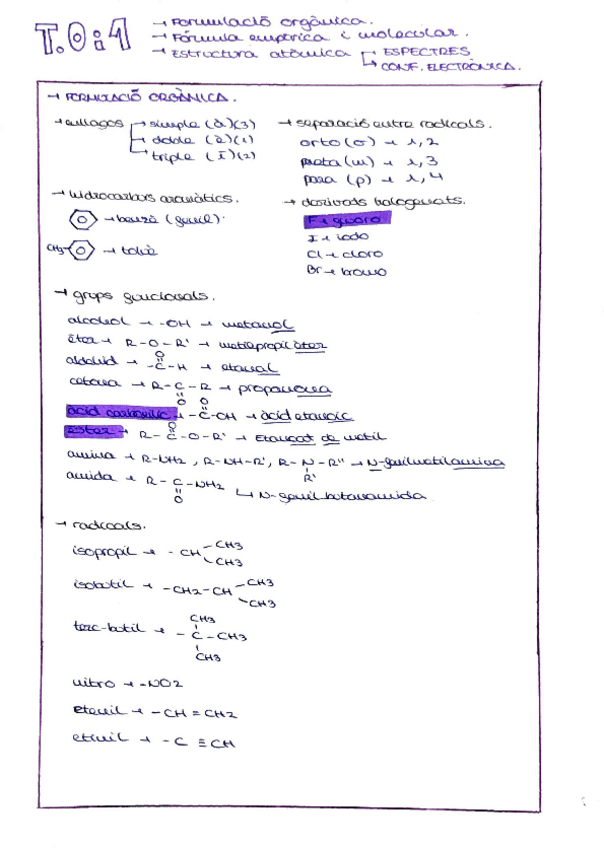 T.0:1
→ Formulació orgànica.
→ Fórmula empírica i molecular.
→ Estructura atòmica → ESPECTRES
→ CONF. ELECTRÒNICA.
→ FORMULACIÓ ORGÀNICA.
→ enllaços → simple (à)(3)
→ doble (è)(2)
→ triple (í)(2)
→ separació entre radicals.
orto (o) → 1,2
meta (m) → 1,3
para (p) → 1,4
→ hidrocarburs aromàtics.
→ benzè (fenil).
CH3 → toluè
→ derivats halogenats.
F → fluoro
I → iodo
Cl → cloro
Br → bromo
→ grups funcionals.
alcohol → -OH → metanol
èter → R-O-R' → metilpropil èter
aldehid → -C-H → etanal
O
cetona → R-C-R → propanona
O
àcid carboxílic → -C-OH → àcid etanoic
O
Èster → R-C-O-R' → Etanoat de metil
O
amina → R-NH2, R-NH-R', R-N-R'' → N-fenilmetilamina
R'
amida → R-C-NH2 → N-fenil butanamida
O
→ radicals.
isopropil → -CH -CH3
-CH3
isobutil → -CH2-CH -CH3
-CH3
terc-butil → -C-CH3
CH3
CH3
nitro → -NO2
etenil → -CH=CH2
etinil → -C≡CH